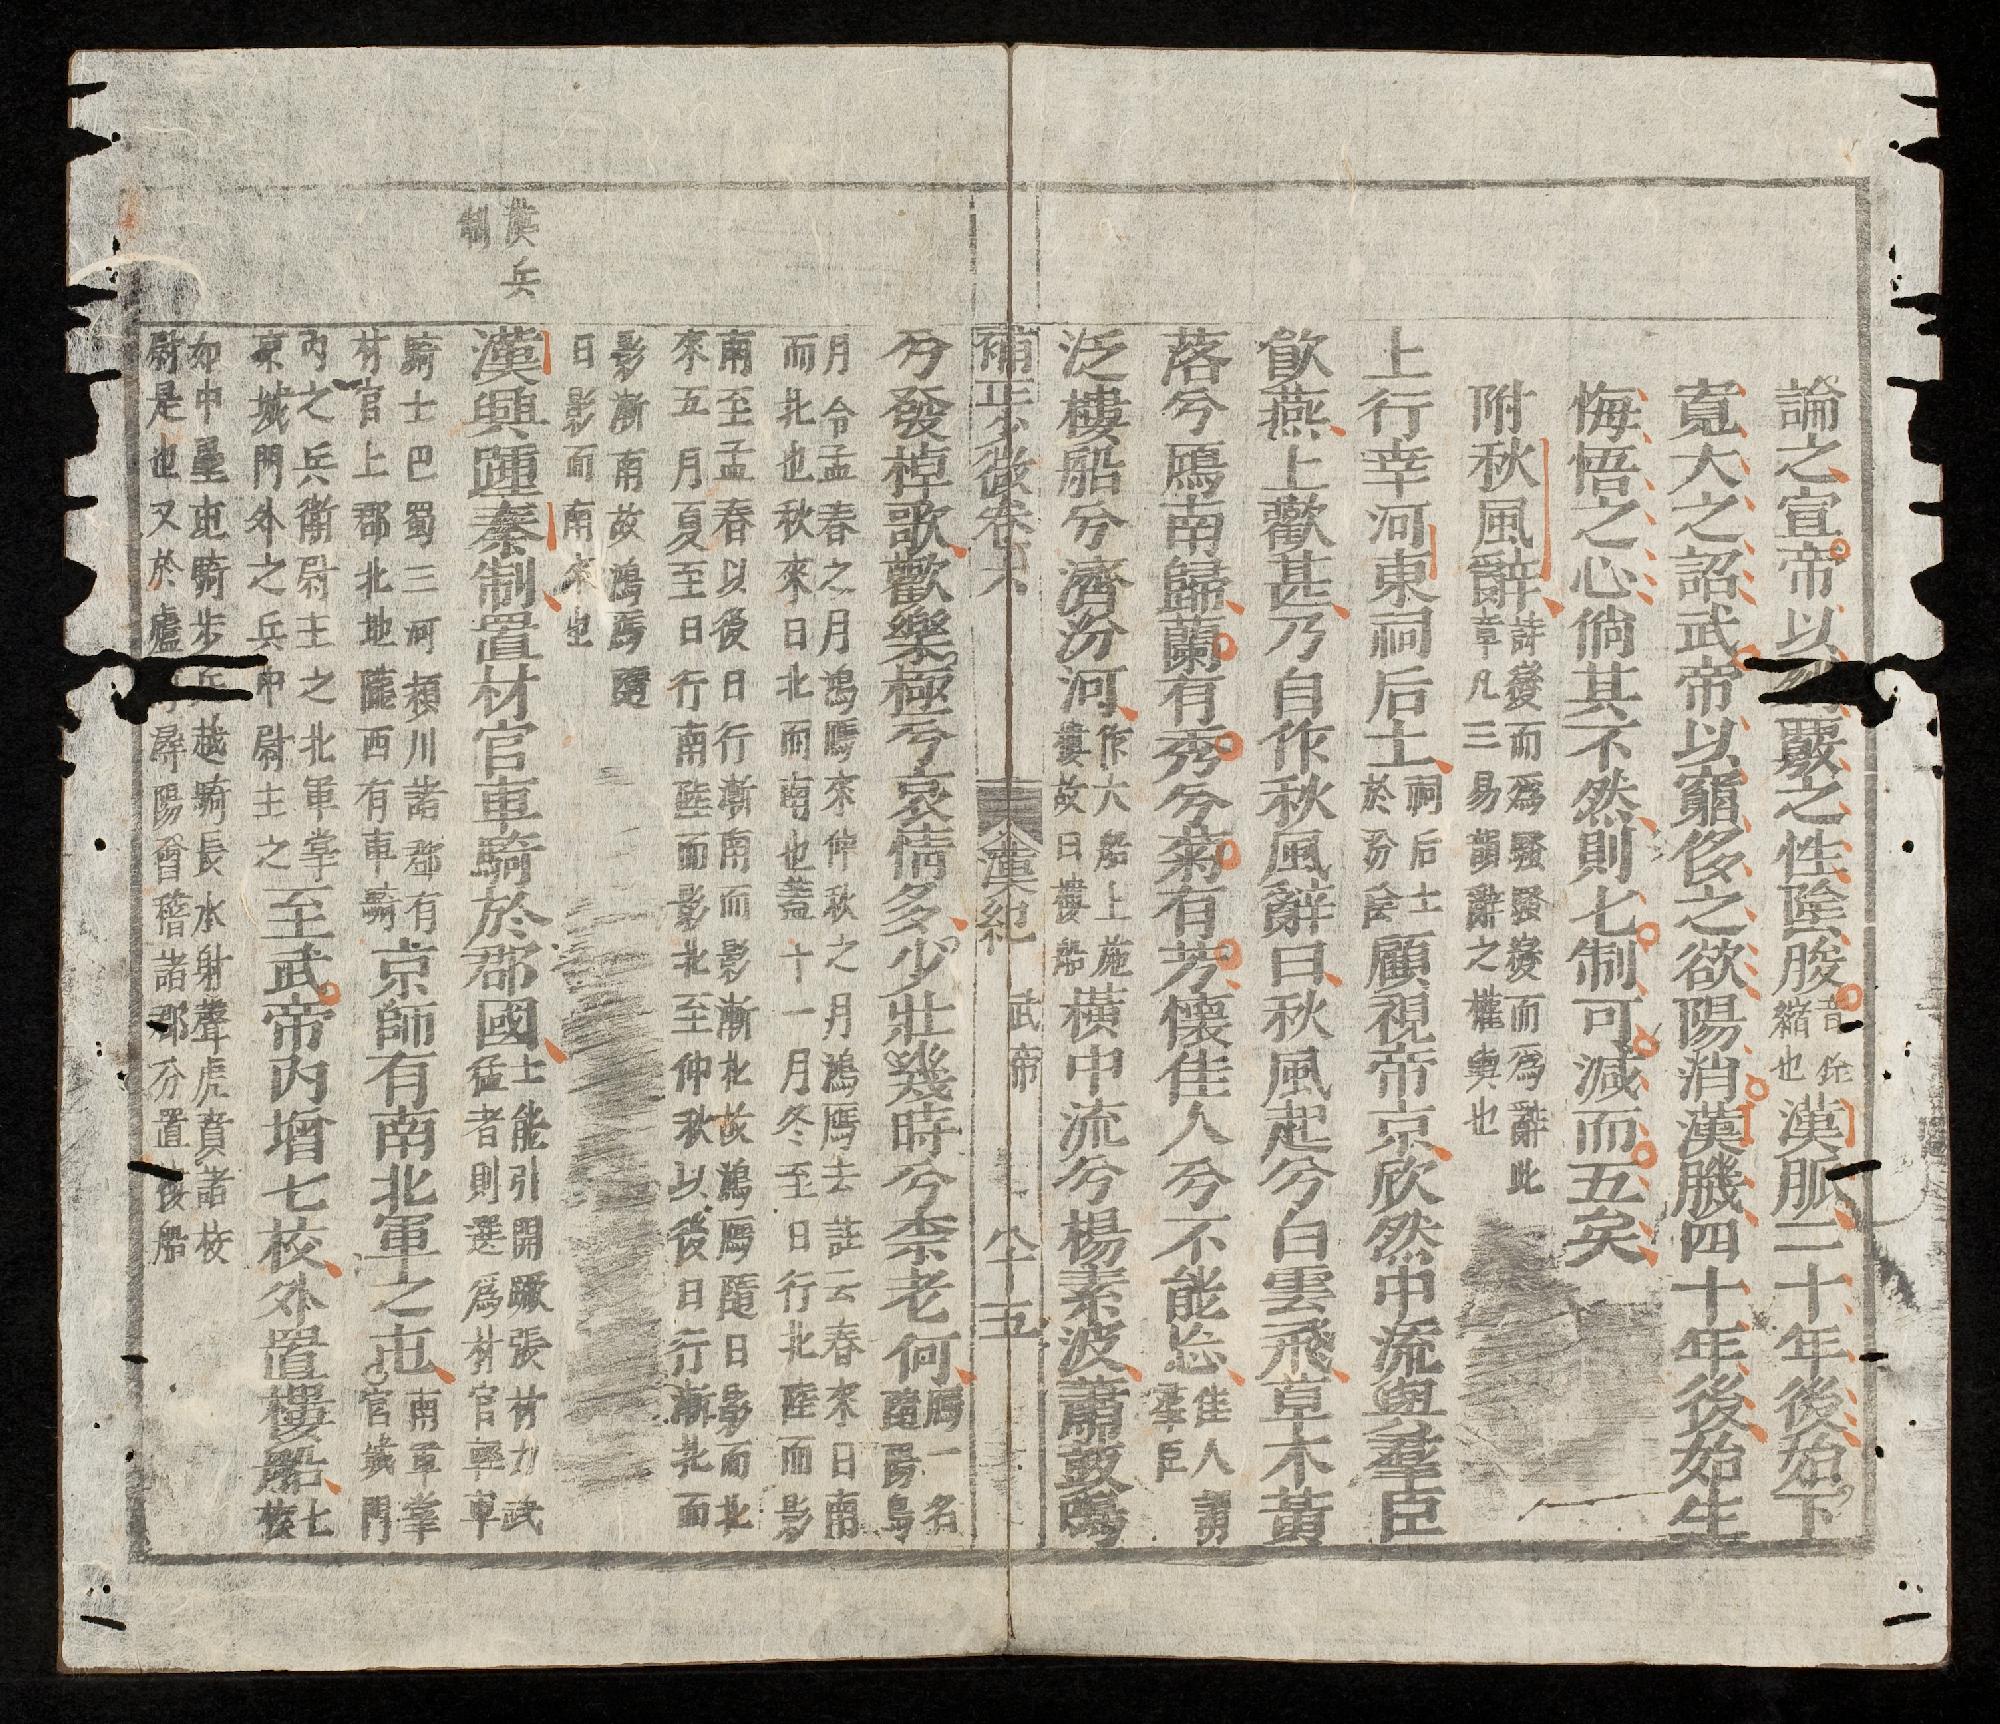 論之宣帝以嚴之性陰朘音佺縮也漢脈二十年後始下
寬大之詔武帝以窮侈之欲陽消漢朘四十年後始生
悔悟之心倘其不然則七制可減而五矣
附秋風辭詩變而爲騷騷變而爲辭此章凡三易韻辭之權輿也
上行幸河東祠后土祠后土於汾陰顧視帝京欣然中流與羣臣
飮燕上歡甚乃自作秋風辭曰秋風起兮白雲飛草木黃
落兮鴈南歸蘭有秀兮菊有芳懷佳人兮不能忘佳人謂羣臣
泛樓船兮濟汾河作大船上施樓故曰樓船橫中流兮楊素波蕭鼓鳴
補正少微卷六 漢紀 武帝 八十五
兮發棹歌歡樂極兮哀情多少壯幾時兮柰老何鴈一名隨陽鳥
月令孟春之月鴻鴈來仲秋之月鴻鴈去註云春來日南
而北也秋來日北而南也蓋十一月冬至日行北陸而影
南至孟春以後日行漸南而影漸北故鴻鴈隨日影而北
來五月夏至日行南陸而影北至仲秋以後日行漸北而
影漸南故鴻鴈隨
日影而南來也
漢兵制
漢興踵秦制置材官車騎於郡國士能引開蹶張材力武猛者則選爲材官輕車
騎士巴蜀三河潁川諸郡有材官上郡北地隴西有車騎京師有南北軍之屯南軍掌宮城門
內之兵衛尉主之北軍掌京城門外之兵中尉主之至武帝內增七校外置樓船七校
如中壘屯騎步兵越騎長水射聲虎賁諸校
尉是也又於廬尋陽會稽諸郡分置樓船